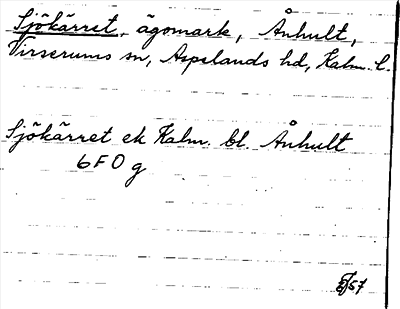 Sjökärret, ägomark, Ånhult,
Virserums sn, Aspelands hd, Kalm. l.
Sjökärret ek Kalm. bl. Ånhult
6 F 0 g